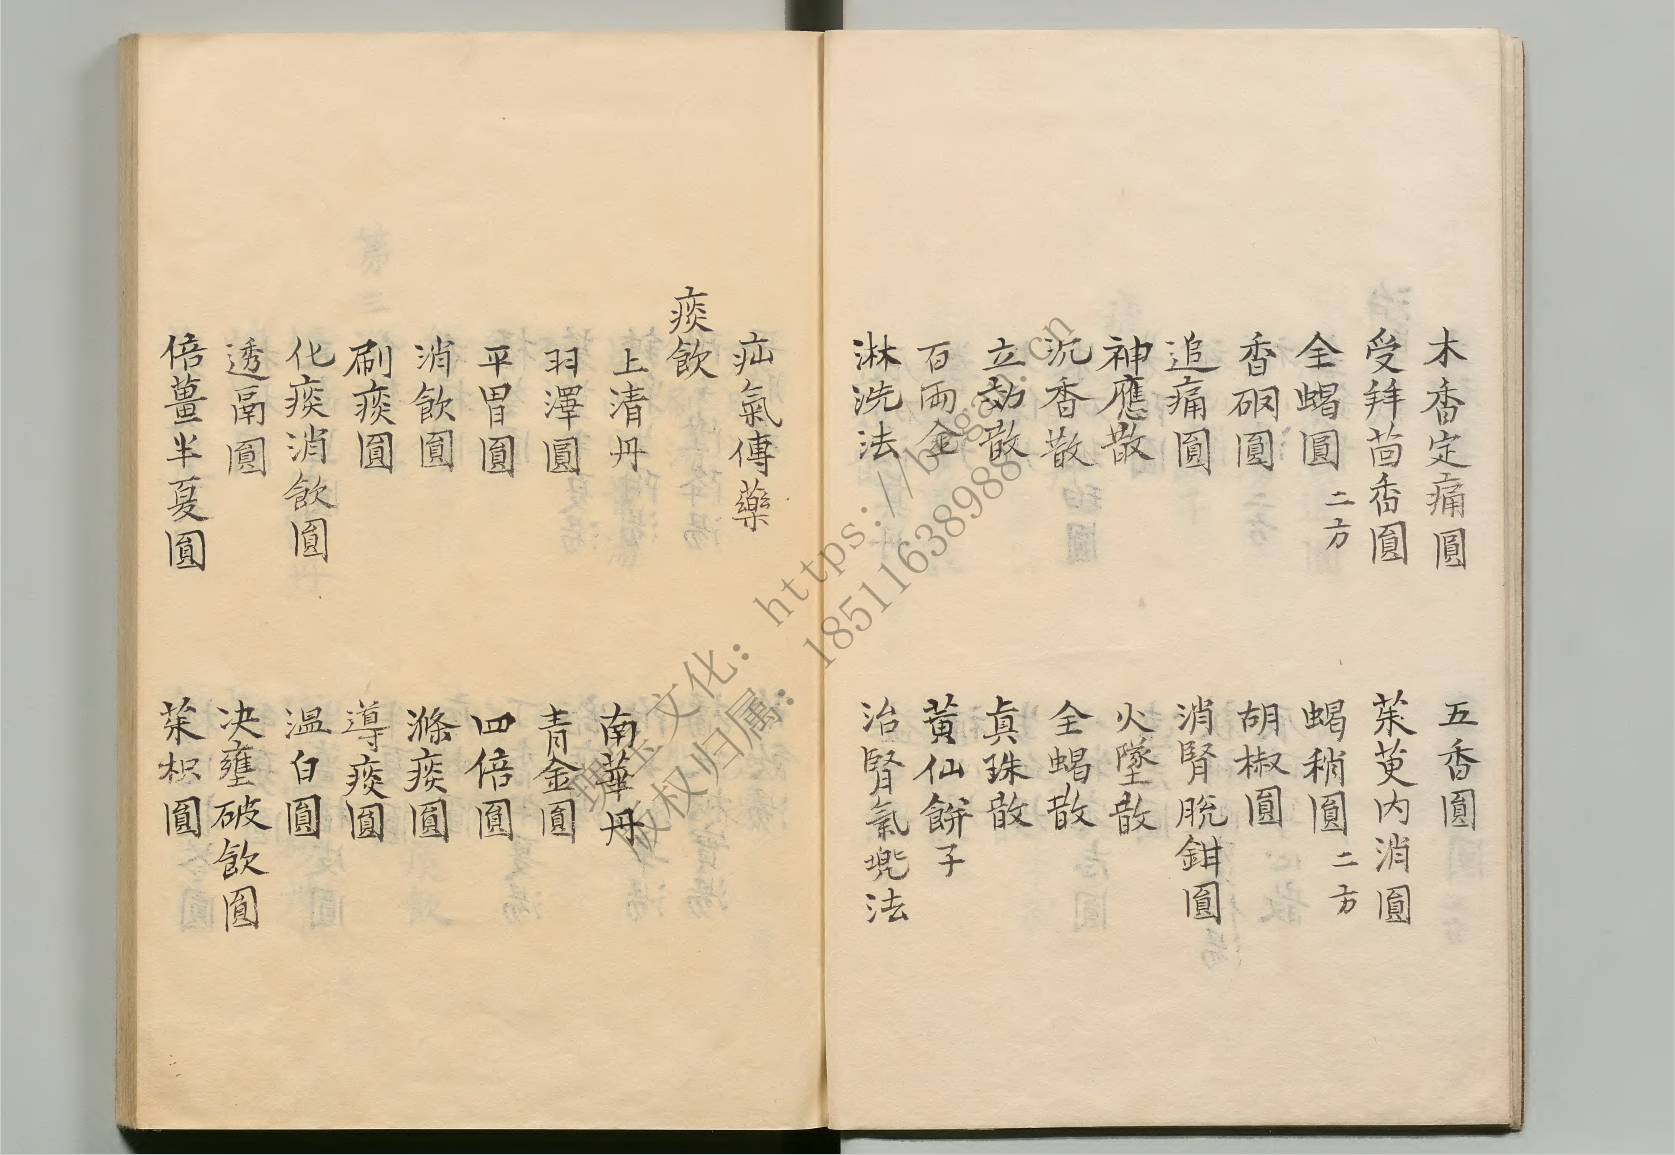 木香定痛圓　五香圓
受拜茴香圓　茱萸内消圓
全蝎圓二方　蝎稍圓二方
香硇圓　胡椒圓
追痛圓　消腎脫鉗圓
神應散　火墜散
沉香散　全蝎散
立効散　真珠散
百兩金　黃仙餅子
淋洗法　治腎氣兠法
疝氣傳藥
痰飲
上清丹　南華丹
羽澤圓　青金圓
平胃圓　四倍圓
消飲圓　滌痰圓
刷痰圓　導痰圓
化痰消飲圓　温白圓
透鬲圓　决壅破飲圓
倍薑半夏圓　茱枳圓
文化：https://bgc.cn
版权归属：18511638988